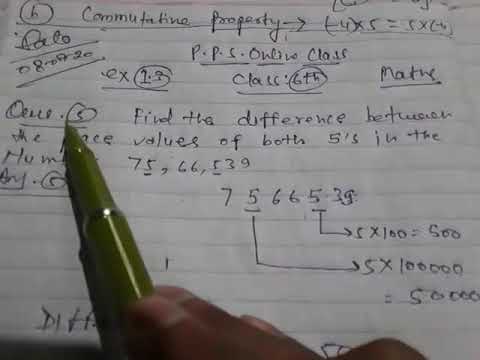 (h) Commutative property → (-4)×5 = 5×(-4)
Date
08.07.20
P.P.S. Online Class
ex 1.2 Class: 6th Maths
Ques. (5) Find the difference between
the place values of both 5's in the
75,66,539
Ans. (5)
7 5 6 6 5 39
→ 5×100 = 500
→ 5×100000
= 50000
Diff